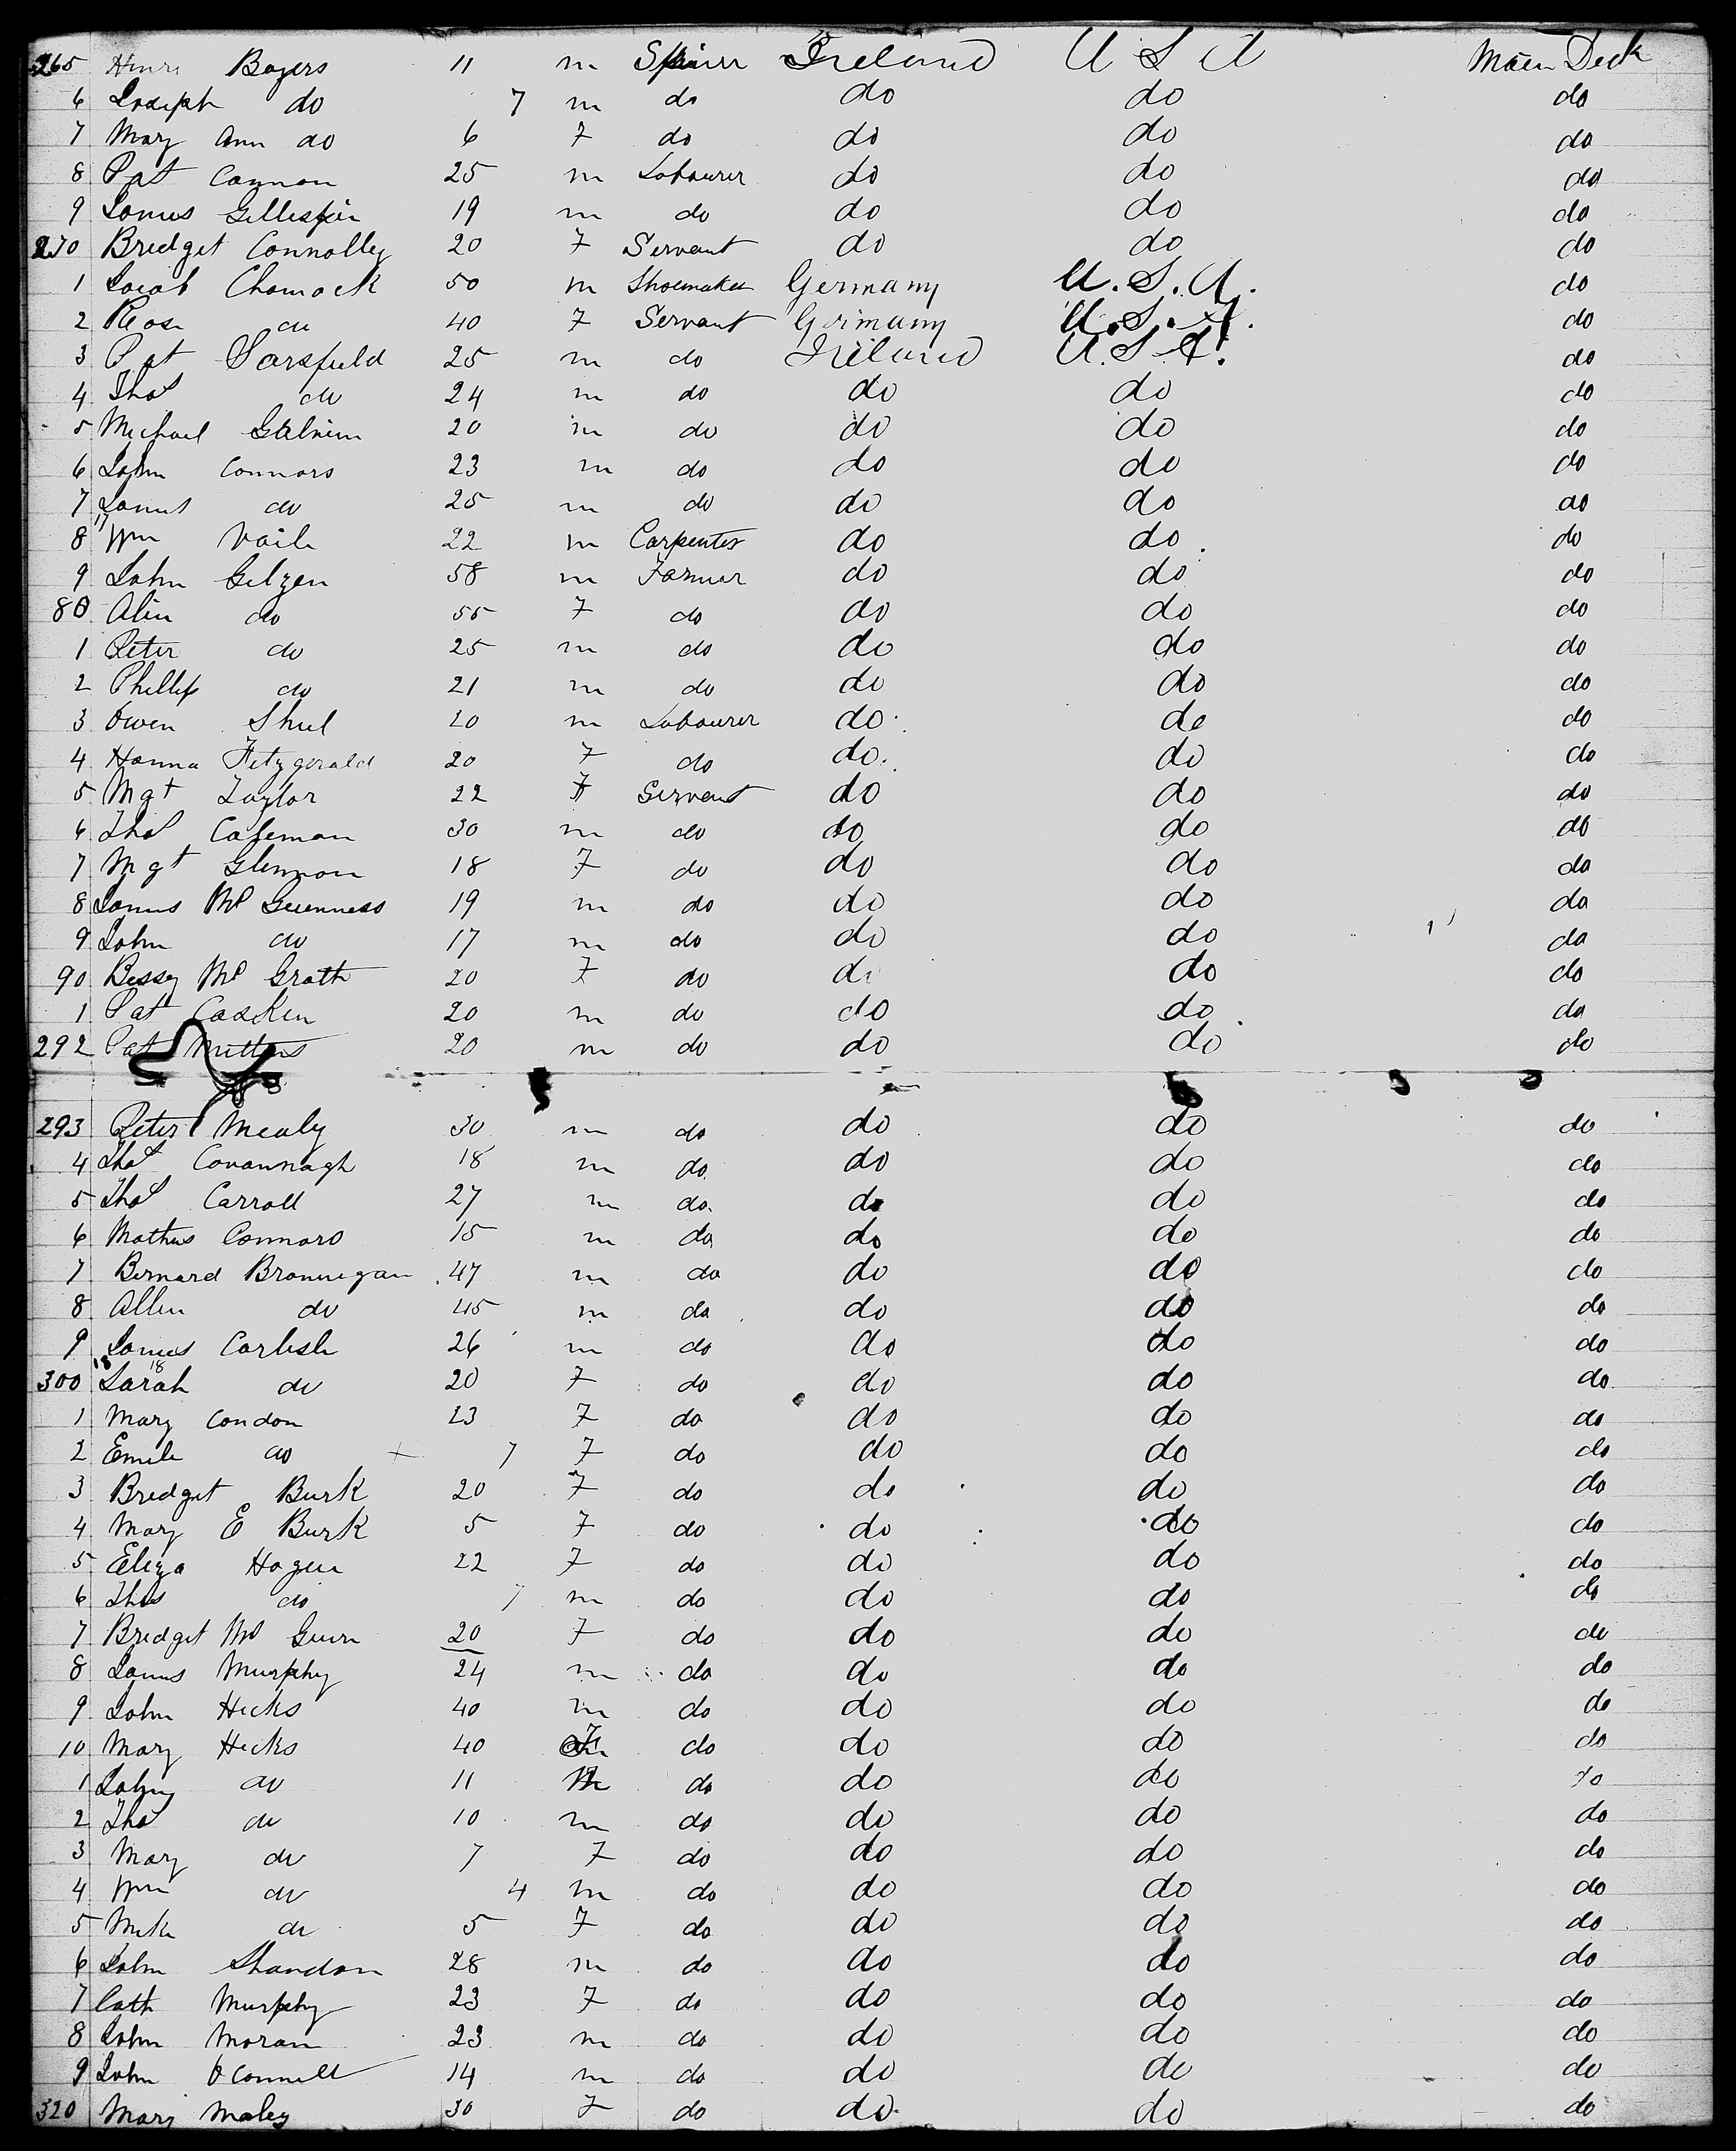 265 Henri Bogers 11 m Spinr Ireland U S A Main Deck
6 Joseph do 7 m do do do do
7 Mary Ann do 6 f do do do do
8 Pat Cannon 25 m Labourer do do do
9 James Gillespie 19 m do do do do
270 Bridget Connolley 20 f Servant do do do
1 Jacob Chamock 50 m Shoemaker Germany U.S.A. do
2 Rose do 40 f Servant Germany U.S.A. do
3 Pat Sarsfield 25 m do Ireland U.S.A. do
4 Thos do 24 m do do do do
5 Michael Galvin 20 m do do do do
6 John Connors 23 m do do do do
7 James do 25 m do do do do
8 17 Wm Vaile 22 m Carpenter do do do
9 John Gilzen 58 m Farmer do do do
80 Alin do 55 f do do do do
1 Peter do 25 m do do do do
2 Phillip do 21 m do do do do
3 Owen Shiel 20 m Labourer do do do
4 Hanna Fitzgerald 20 f do do do do
5 Mgt Taylor 22 f Servant do do do
6 Thos Coleman 30 m do do do do
7 Mgt Glennon 18 f do do do do
8 James Mc Guenness 19 m do do do do
9 John do 17 m do do do do
90 Bessy Mc Grath 20 f do do do do
1 Pat Casken 20 m do do do do
292 Pat 20 m do do do do
293 Peter Mealy 30 m do do do do
4 Thos Cavannagh 18 m do do do do
5 Thos Carroll 27 m do do do do
6 Mathus Connars 15 m do do do do
7 Bernard Brannigan 47 m do do do do
8 Allen do 45 m do do do do
9 James Carlisle 26 m do do do do
300 18 18 Sarah do 20 f do do do do
1 Mary Condon 23 f do do do do
2 Emile do + 7 f do do do do
3 Bridget Burk 20 f do do do do
4 Mary E Burk 5 f do do do do
5 Eliza Hogan 22 f do do do do
6 Thos do 7 m do do do do
7 Bridget Mc Guire 20 f do do do do
8 James Murphy 24 m do do do do
9 John Hicks 40 m do do do do
10 Mary Hicks 40 f do do do do
1 Johny do 11 m do do do do
2 Thos do 10 m do do do do
3 Mary do 7 f do do do do
4 Wm do 4 m do do do do
5 Mike do 5 f do do do do
6 John Shandon 28 m do do do do
7 Cath Murphy 23 f do do do do
8 John Moran 23 m do do do do
9 John O Connell 14 m do do do do
320 Mary Maley 30 f do do do do